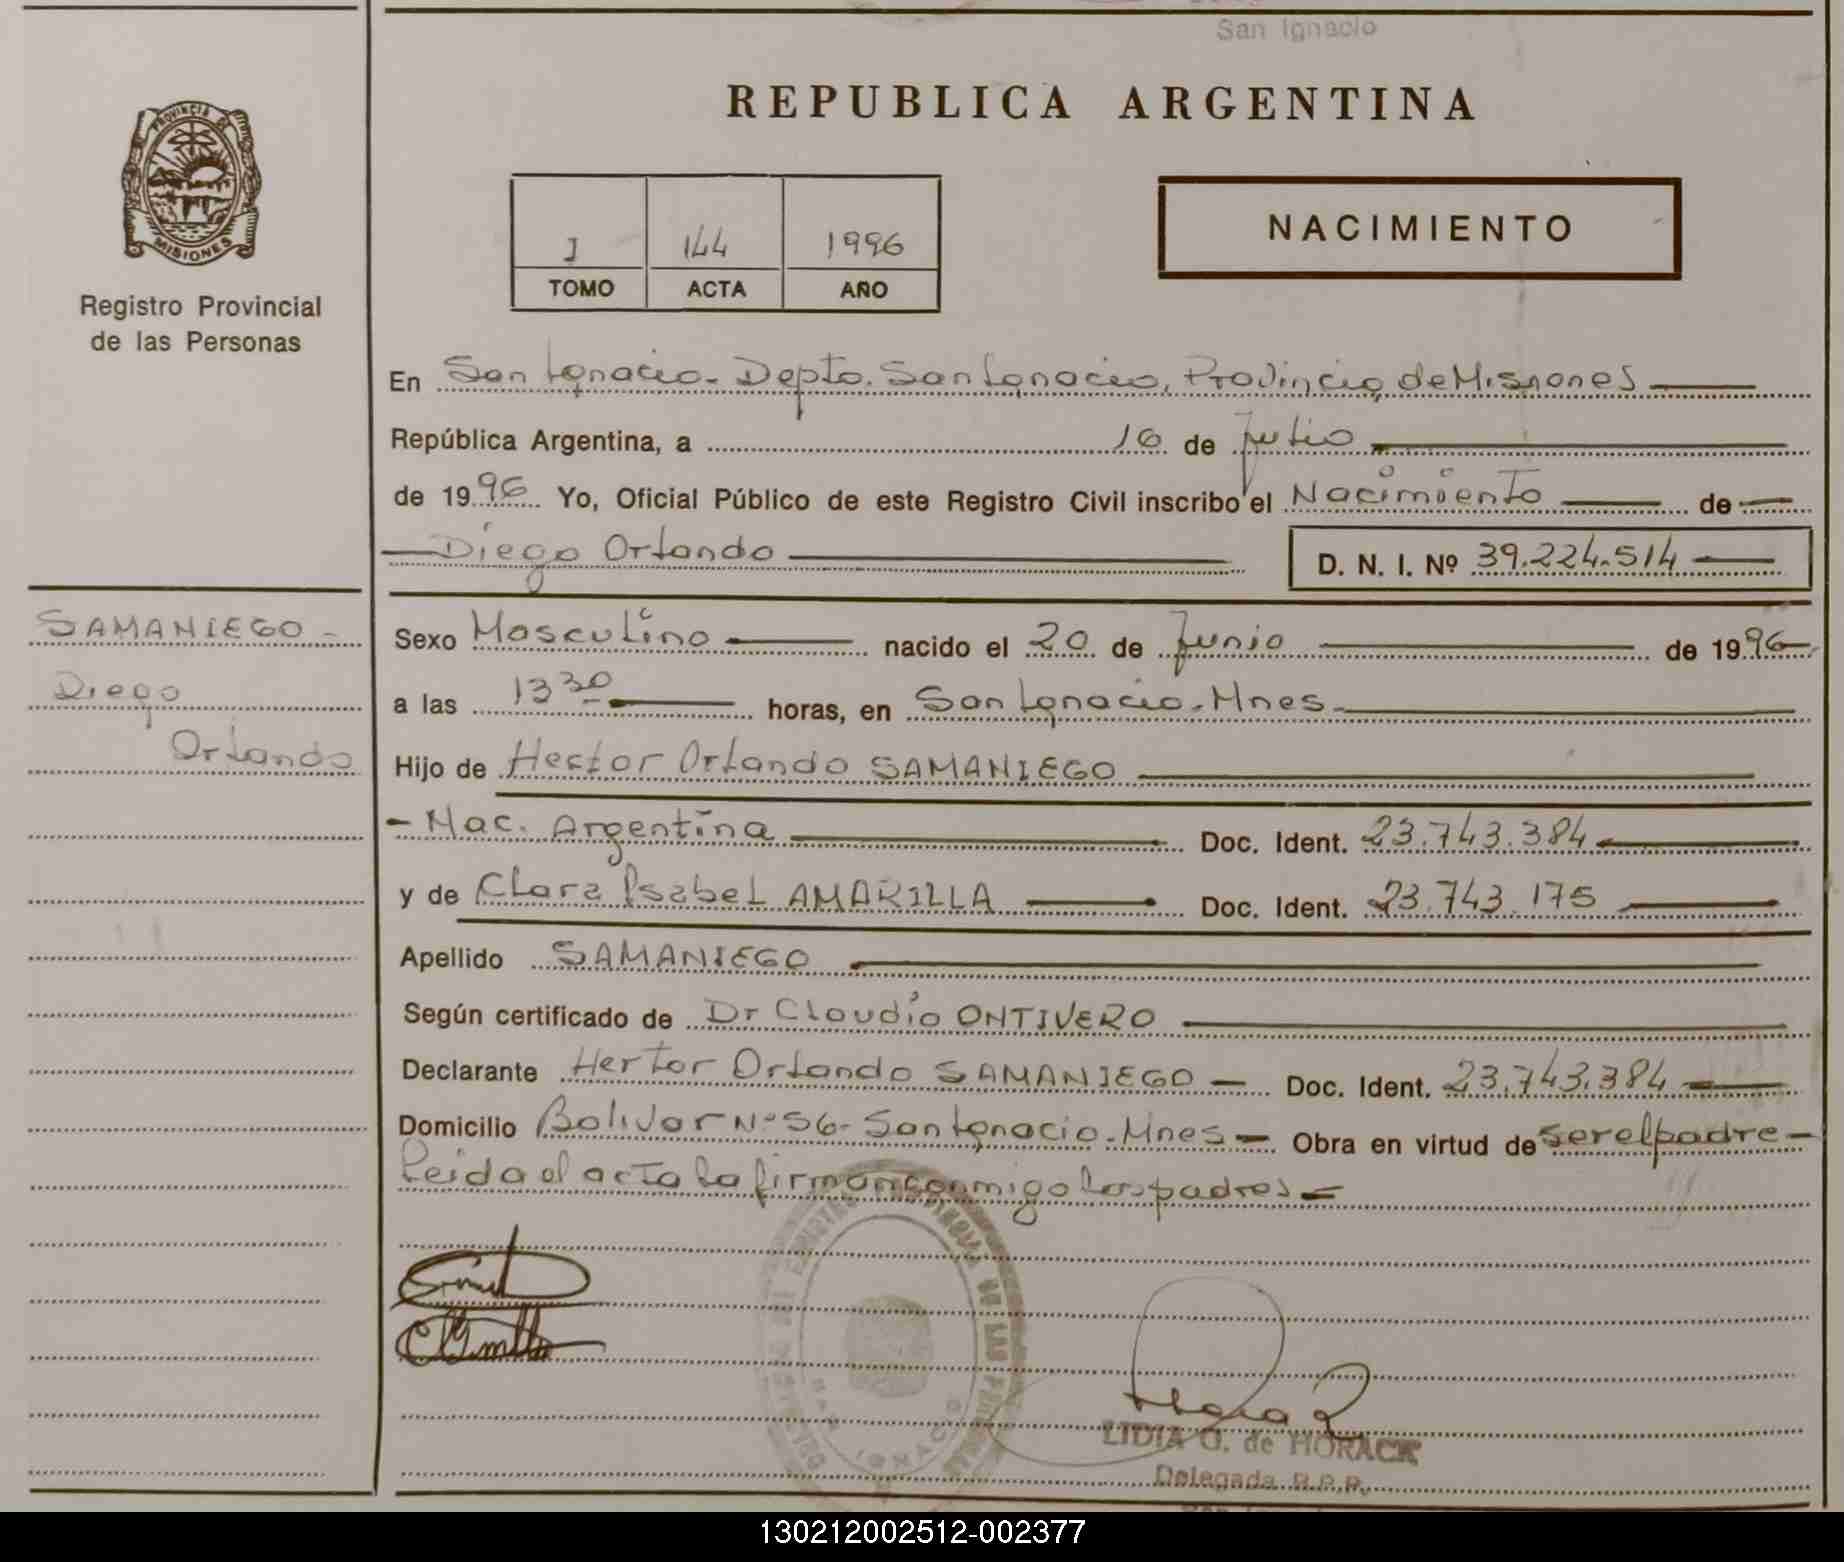 San Ignacio
PROVINCIA DE
MISIONES
Registro Provincial
de las Personas
REPUBLICA ARGENTINA
I 144 1996
TOMO ACTA AÑO
NACIMIENTO
En San Ignacio - Depto. San Ignacio, Provincia de Misiones
República Argentina, a 16 de Julio
de 1996 Yo, Oficial Público de este Registro Civil inscribo el Nacimiento de
Diego Orlando D. N. I. Nº 39.224.514
SAMANIEGO -
Diego
Orlando
Sexo Masculino nacido el 20 de Junio de 1996
a las 13 30 horas, en San Ignacio - Mnes.
Hijo de Hector Orlando SAMANIEGO
- Nac. Argentina Doc. Ident. 23.743.384
y de Clara Isabel AMARILLA Doc. Ident. 23.743.175
Apellido SAMANIEGO
Según certificado de Dr Claudio ONTIVERO
Declarante Hector Orlando SAMANIEGO Doc. Ident. 23.743.384
Domicilio Bolivar Nº 56 - San Ignacio - Mnes - Obra en virtud de ser el padre -
Leida el acta la firman conmigo los padres -
LIDIA G. de HORACK
Delegada R.P.P.
130212002512-002377